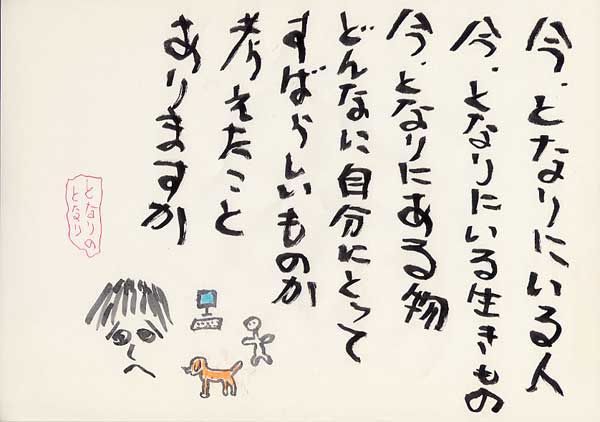 今、となりにいる人
今、となりにいる生きもの
今、となりにある物
どんなに自分にとって
すばらしいものか
考えたこと
ありますか
となりの
となり